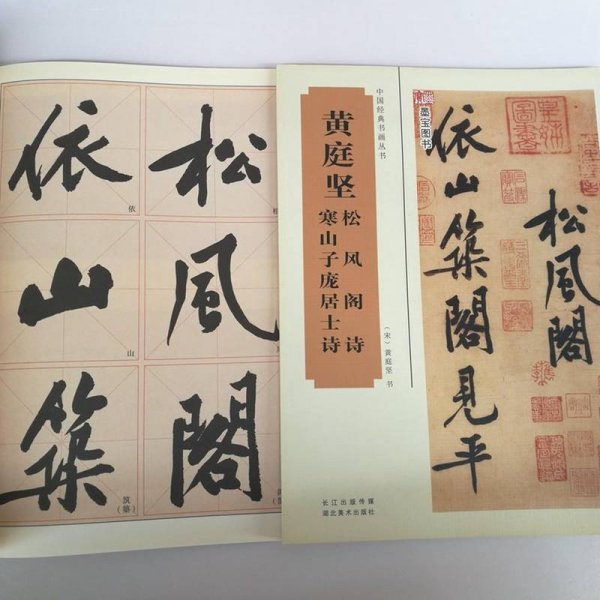 松風閣
依山築
依
山
筑
(築)
中国经典书画丛书
黄庭坚
松风阁诗
寒山子庞居士诗
(宋)黄庭坚 书
长江出版传媒
湖北美术出版社
墨宝图书
松風閣
依山築閣見平